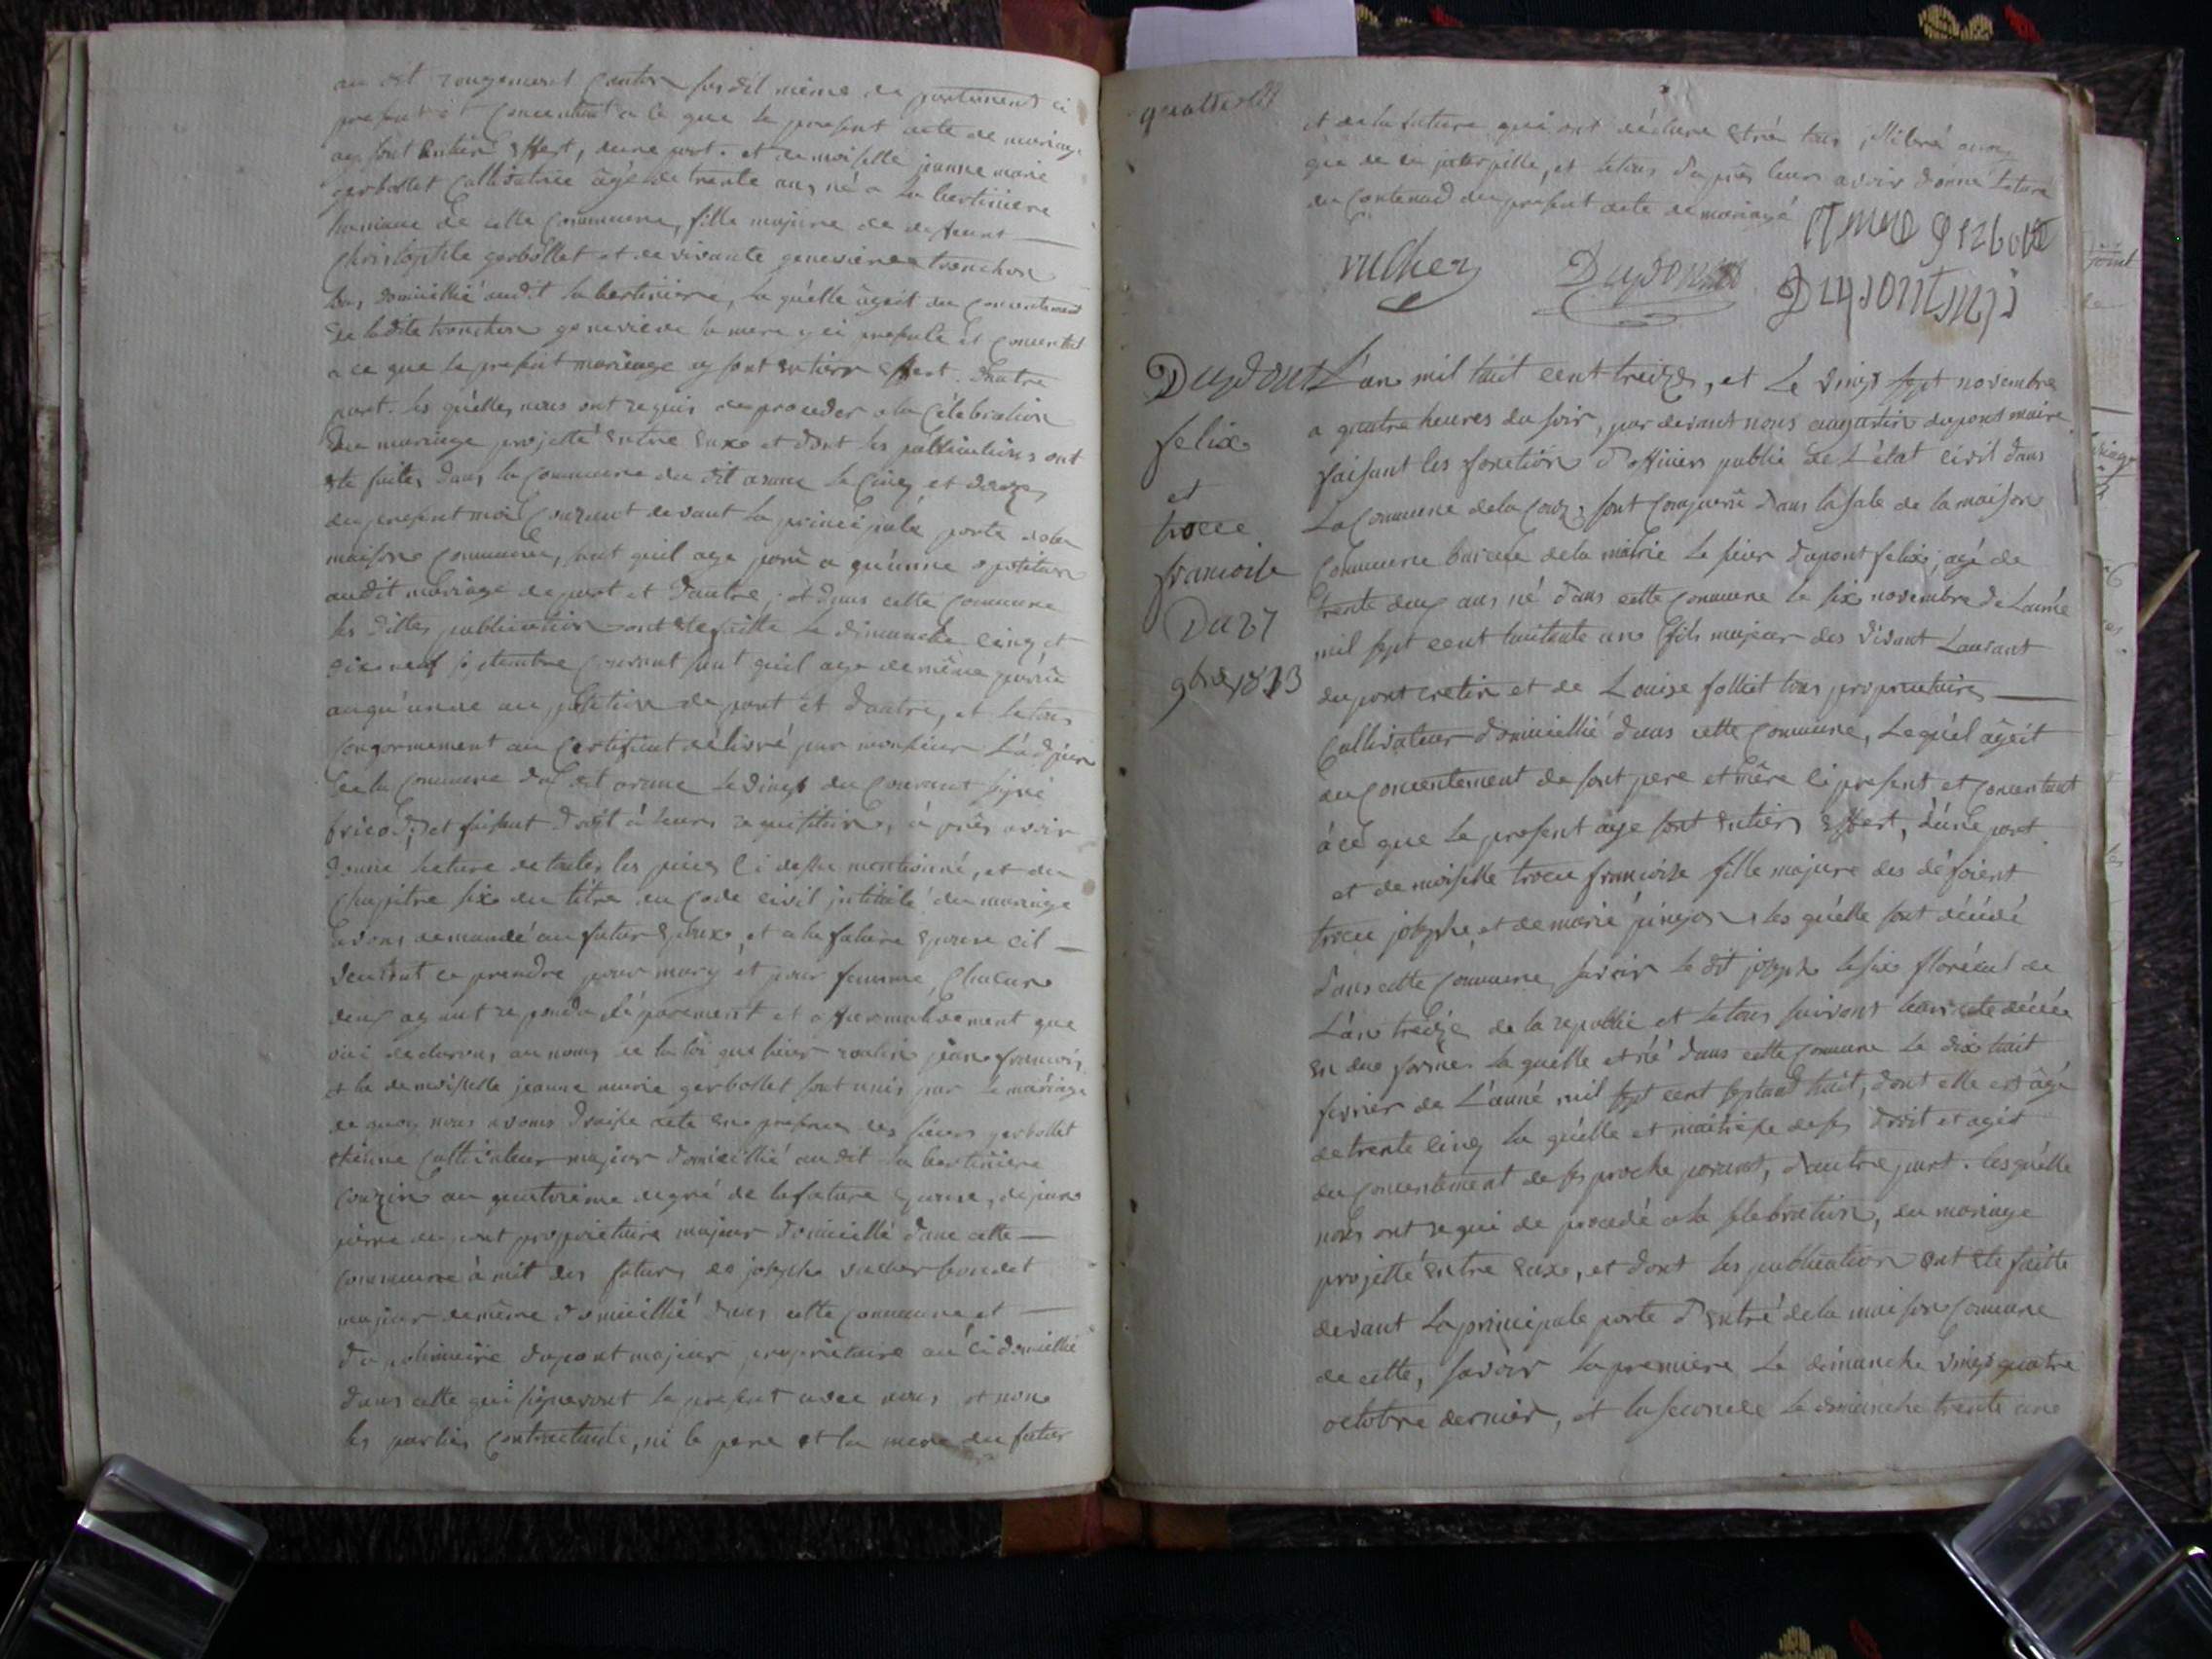 au dit rougemont canton susdit même departement ci
present et concentent a ce que le present acte de mariage
aye sont entier effect, dune part. et demoiselle jeanne marie
gerbollet cultivatrice âgé de trente ans né a la bertiniere
hamaux de cette commune, fille majeure de deffeunt
Christophle gerbollet et de vivante genevieve tronchon
tous domicillié audit la bertiniere, laquélle âgeit du concentement
de ladite tronchon genevieve sa mere y ci presente et concentent
a ce que le present mariage aye sont entiere effect. d'autre
part. les quélles nous ont requis de proceder a la célébration
du mariage projetté entre eux et dont les publications ont
eté faites dans la commune du dit le cinq et douze
du present mois courant devant la principale porte de la
maison commune, sant quil aye parû a qu'unne opotition
audit mariage de part et d'autre; et dans cette commune
les dittes publication ont eté faitte le dimanche cinq et
dix neuf septembre courant sant quil aye de même parûe
auqu'unne oupotition de part et d'autre, et le tous
conformement au certificat délivré par monsieur l'adjoin
de la commune le vingt du courant signé
et faisant droit à leurs requisition, à près avoir
donne lecture de toutes les pieces ci dessu mentionné, et du
Chapitre six du titre du Code civil intitulé du mariage
avons demandé au futur epoux, et a la future epouse cil
veullent ce prendre pour mary et pour femme, chacun
deux ayant repondu séparement et affirmativement que
oui declarons au nom de la loi que sieur jean francois
et la demoiselle jeanne marie gerbollet sont unis par le mariage
de quoy nous avons draise acte en presence des sieurs gerbollet
etienne cultivateur majeur domicillié au dit la bertiniere
couzin au quatrieme degré de la future epouse, de jean
pierre dupont proprietaire majeur domicillé dans cette
commune à mit des futurs de josephe vucher
majeur de même domicillié dans cette commune et
d'a dupont majeur proprietaire au ci domicillié
dans cette qui signeront le present avec nous et non
les parties contractante, ni le pere et la mere du futur
et de la future qui ont déclare etré tous
que de ce interpelle, et le tous d'aprês leurs avoir donné lecture
du contenud du present acte de mariagé
vucher Dupont Dupont
Dupont
felix
et
trocu
francoise
Du 27
9bre 1813
L'an mil huit cent treize, et le vingt sept novembre
a quatre heures du soir, par devant nous augustin dupont maire
faisant les fonction d'officier public de L'état civil dans
La commune dela Couz, sont comparû dans la sale de la maison
commune bureau dela mairie le sieur dupont felix, agé de
trente deux ans né dans cette commune le six novembre de l'année
mil sept cent huitante un fils majeur des vivant Laurant
dupont cretin et de Louise folliet tous proprietaire
Cultivateur domicillié dans cette commune, Lequ'el âgeit
du concentement de sont pere et mêre ci present et concentant
à ce que le present aye sont entier effect, d'une part
et demoiselle trocu francoise fille majeure des défeient
trocu josephe, et de marie pinjon, les quélle sont décédé
dans cette commune, savoir le dit joseph le six floréal de
L'an treize de la republic et le tous suivant leurs acte décée
en due forme. laquelle et né dans cette commune le dix huit
fevrier de L'année mil sept cent septand huit, dont elle est âgé
de trente cinq la quélle et maitresse de ses droit et agit
du concentement de ses proche parant, d'autre part. les quélle
nous ont requi de procedé a la selebration, du mariage
projetté entre eux, et dont les publication ont eté faitte
devant la principale porte d'entré dela maison commune
de cette, savoir la premiere le dimanche vingt quatre
octobre dernier, et la seconde le dimanche trente une